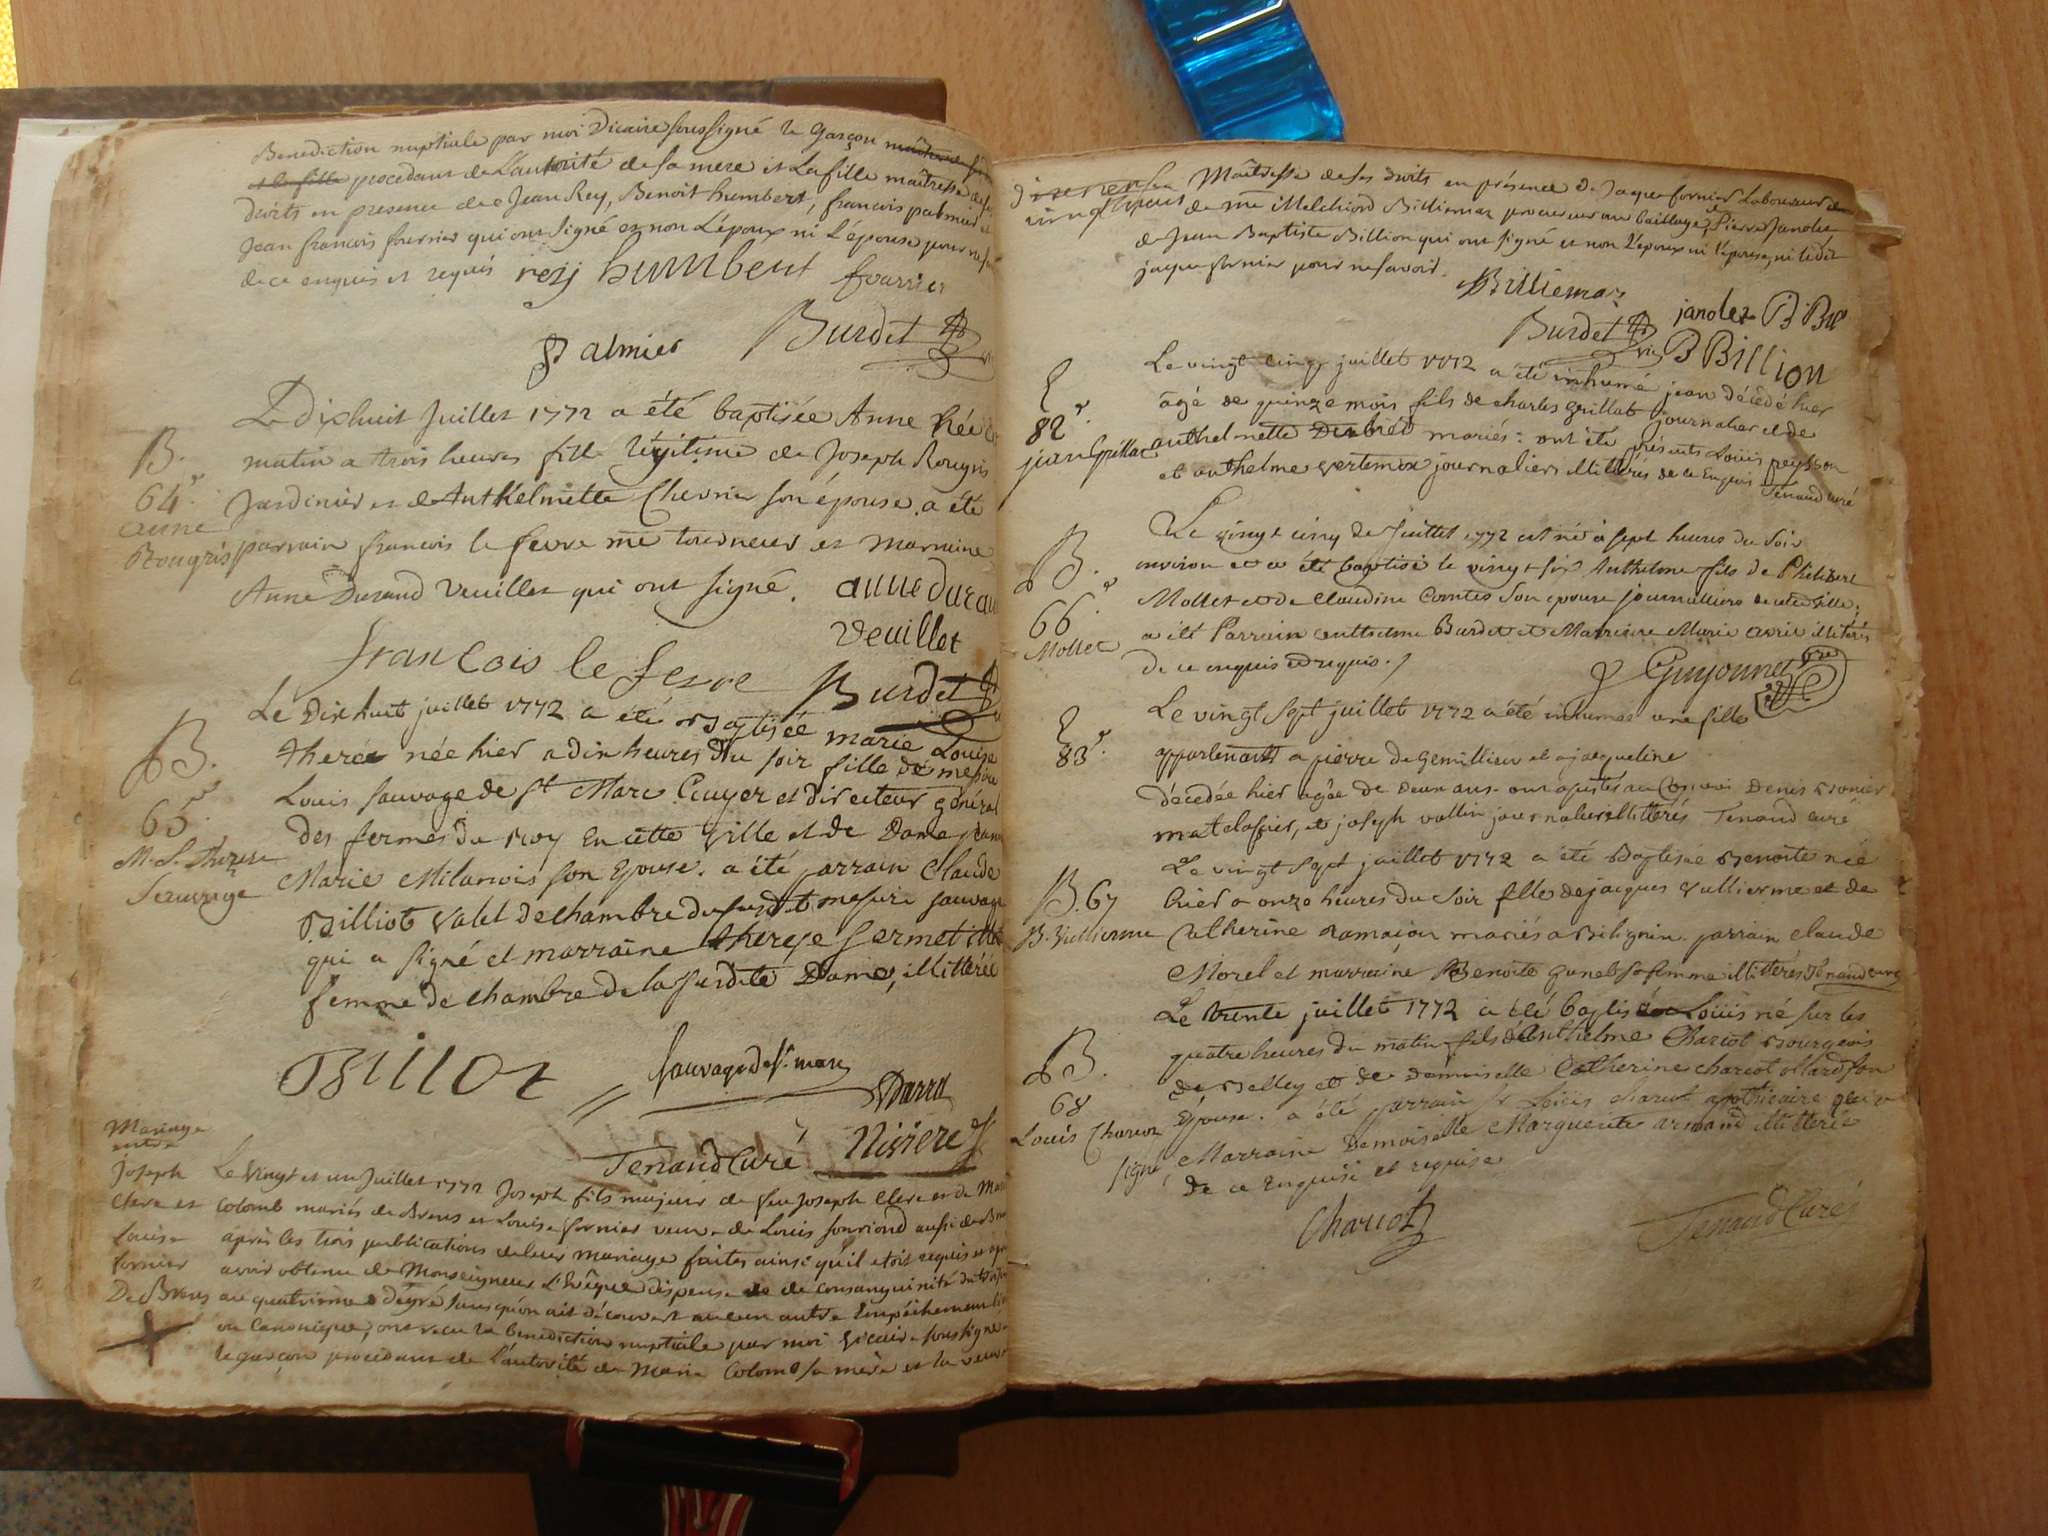 Benediction nuptiale par moi Vicaire soussigné le Garçon
et la fille procedant de L'autorité de sa mere et La fille maîtresse de ses
droits en presence de Jean Rey, Benoit humbert, francois palmier et
Jean francois fournier qui ont signé et non L'époux ni L'épouse pour
de ce enquis et requis rey humbert fournier
Palmier Burdet
Le dixhuit Juillet 1772 a été baptisée Anne Née
matin a trois heures fille légitime de Joseph Rougris
Jardinier et d'Anthelmette Chevrier son épouse. a été
parrain francois le fevre me tourneur et marraine
Anne Durand Veuillet qui ont signé. anne duran
veuillet
B.
64e.
anne
Rougris
francois le fevre Burdet
Le Dix huit juillet 1772 a été Baptisée marie Louise
therese née hier a dix heures Du soir fille de messire
Louis Sauvage de St Marc Ecuyer et directeur général
des fermes du Roy En cette ville et de Dame
Marie Milanois son Epouse. a été parrain Claude
Billiot valet de chambre du susdit mesire sauvage
qui a signé et marraine therese Germet
femme de chambre de la susdite Dame, illitterée
B.
65e
M. L. Therese
Sauvage
Billot sauvage de st. marc
Darra
Tenand Curé Nisiere
Mariage
entre
joseph
Clerc et
Louise
fornier
De Brens
Le Vingt et un Juillet 1772 Joseph fils majeur de feu Joseph Clerc et de Marie
Colomb mariés de Brens et Louise fornier veuve de Louis aussi de Brens
après les trois publications de leur mariage faites ainsi qu'il etoit requis et après
avoir obtenu de Monseigneur L'Evêque dispense de consanguinité du
au quatrieme degré sans qu'on ait découvert aucun autre Empêchement
ou Canonique, ont reçu la benediction nuptiale par moi Vicaire soussigné
le garçon procedant de l'autorité de Marie Colomb sa mère et la veuve
Maîtresse de ses droits en présence de Jaque fornier Laboureur
de me Melchiord Billiemaz procureur au bailliage, Pierre Janolez
de Jean Baptiste Billion qui ont signé et non l'époux ni l'épouse, ni ledit
jaque fornier pour ne savoir.
Billiemaz
janolez B Bil
Burdet vic B Billion
Le vingt cinq juillet 1772 a été inhumé jean décédé hier
âgé de quinze mois fils de charles grillat journalier et de
anthelmette mariés: ont été présents Louis peysson
et anthelme vertemox journaliers illitterés de ce Enquis Tenand curé
82e.
jean Grillat
Le vingt cinq de Juillet 1772 est né à sept heures du soir
environ et a été baptisé le vingt six Anthelme fils de Philibert
Mollet et de Claudine Comtes son epouse journalliers de cette ville.
a été Parrain anthelme Burdet et Marraine Marie avril illitérés
de ce enquis et requis.
B.
66e.
Mollet
Guyonnet
Le vingt sept juillet 1772 a été inhumée une fille
appartenant a pierre De Gemillieu et a jacqueline
décedée hier agée de deux ans. ont assistés au Convoi Denis
matelassier, et joseph vallin journalier illitterés Tenand curé
83e.
Le vingt sept juillet 1772 a été Baptisée Benoite née
hier a onze heures du soir fille de jacques vullierme et de
Catherine ramajon mariés a Bilignin. parrain claude
Morel et marraine Benoite sa femme illitterés Tenand curé
B. 67
B. Vullierme
Le trente juillet 1772 a été baptisé Louis né sur les
quatre heures du matin fils d'Anthelme Charcot Bourgeois
de Belley et de Demoiselle Catherine charcot son
Epouse. a été parrain sr Louis charcot apothicaire qui a
signé Marraine Demoiselle Marguerite armand illitterée
de ce Enquise et requise
B.
68
Louis Charcot
Charcot
Tenand Curé